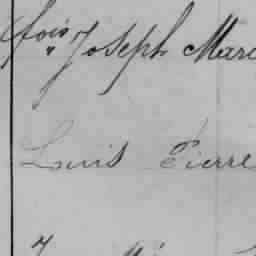 fois Joseph Marc
Louis Pierre